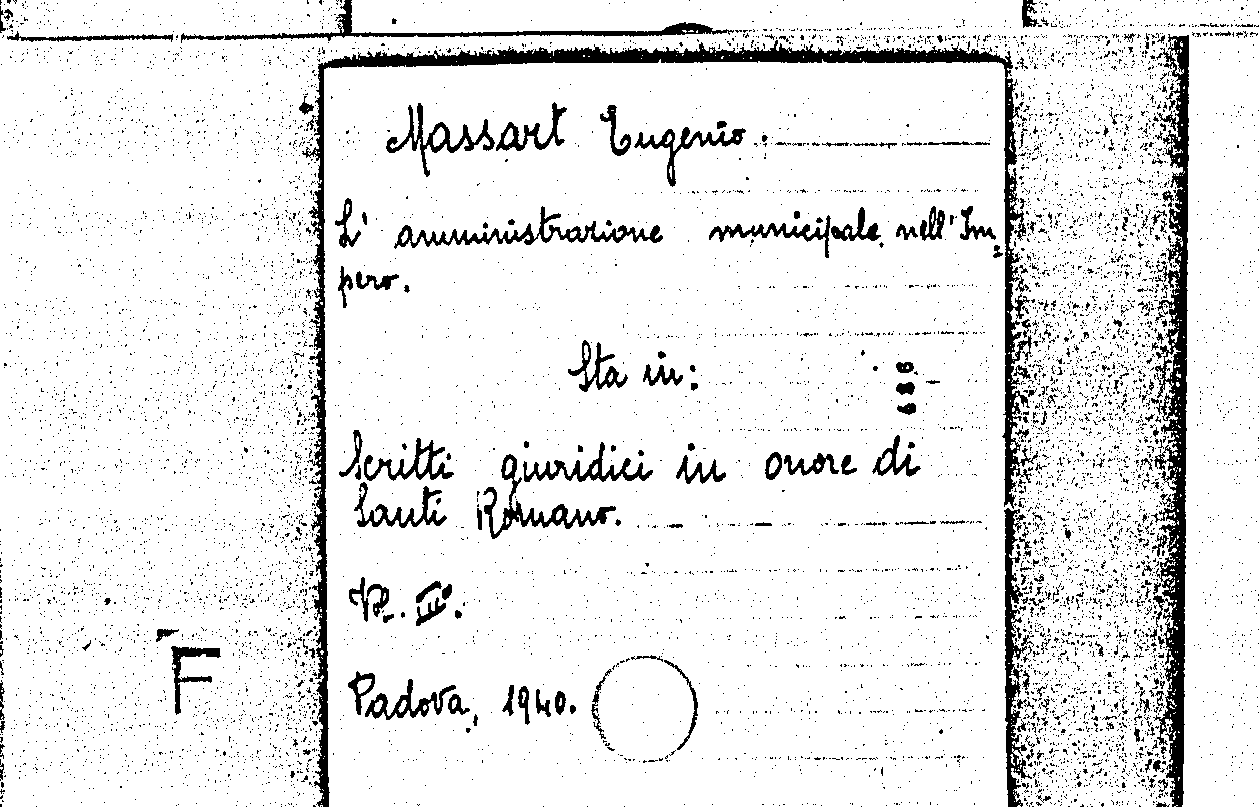 Massart Eugenio.
L'amministrazione municipale nell'Im=
pero.
Sta in:
Scritti giuridici in onore di
Santi Romano.
Vol. III°.
Padova, 1940.
F